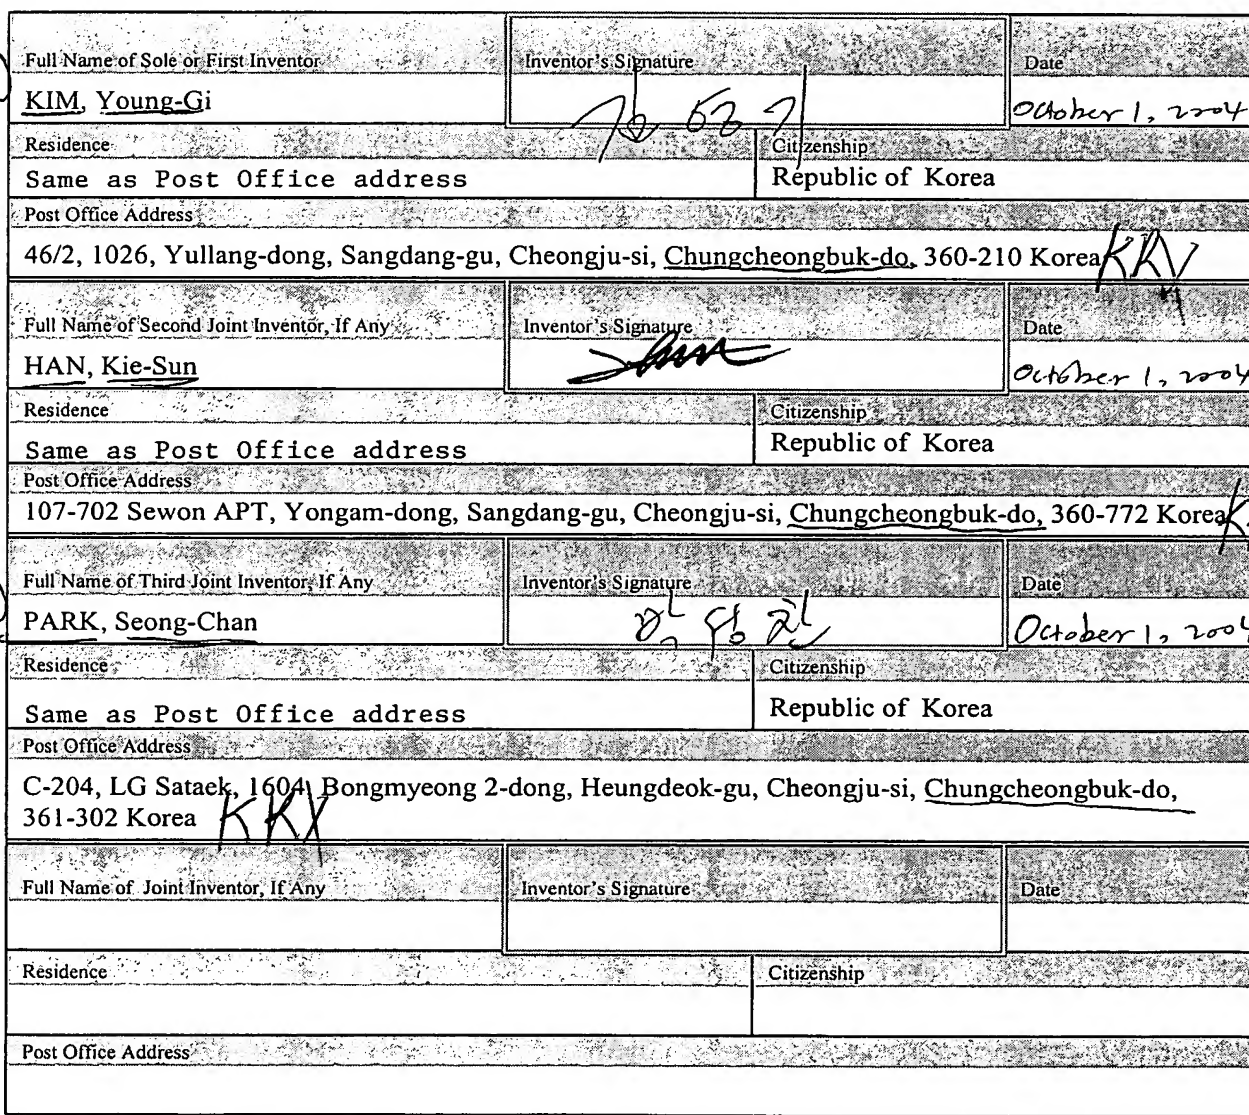 Full Name of Sole or First Inventor Inventor's Signature Date
KIM, Young-Gi 김영기 October 1, 2004
Residence Citizenship
Same as Post Office address Republic of Korea
Post Office Address
46/2, 1026, Yullang-dong, Sangdang-gu, Cheongju-si, Chungcheongbuk-do, 360-210 Korea
Full Name of Second Joint Inventor, If Any Inventor's Signature Date
HAN, Kie-Sun October 1, 2004
Residence Citizenship
Same as Post Office address Republic of Korea
Post Office Address
107-702 Sewon APT, Yongam-dong, Sangdang-gu, Cheongju-si, Chungcheongbuk-do, 360-772 Korea
Full Name of Third Joint Inventor, If Any Inventor's Signature Date
PARK, Seong-Chan 박성찬 October 1, 2004
Residence Citizenship
Same as Post Office address Republic of Korea
Post Office Address
C-204, LG Sataek, 1604, Bongmyeong 2-dong, Heungdeok-gu, Cheongju-si, Chungcheongbuk-do,
361-302 Korea KRX
Full Name of Joint Inventor, If Any Inventor's Signature Date
Residence Citizenship
Post Office Address